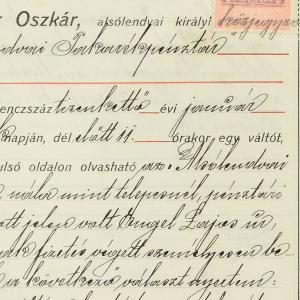 r Oszkár, alsólendvai királyi közjegyz
dvai Takarékpénztár
enczszáz tizenkettő évi január
napján, dél előtt 11. órakor egy váltót,
ulsó oldalon olvasható az: Alsólendvai
nála mint telepesnél, pénztári
tt jelen volt Engel Lajos úr,
ak fizetés végett személyesen be
a következő választ nyertem: